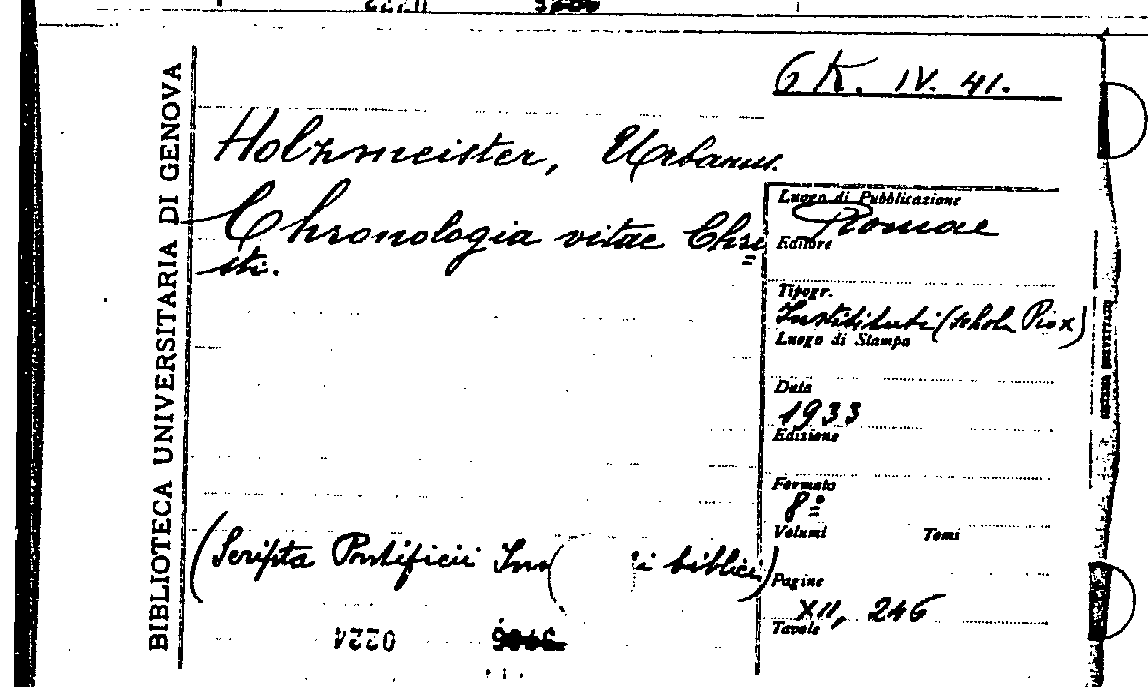 6 K. IV. 41.
BIBLIOTECA UNIVERSITARIA DI GENOVA
Holzmeister, Urbanus.
Chronologia vitae Chri
sti.
Luogo di Pubblicazione
Romae
Editore
Tipogr.
Instituti (schola Pio X)
Luogo di Stampa
Data
1933
Edizione
Formato
8º
Volumi Tomi
Pagine
XII, 246
Tavole
(Scripta Pontificii biblici)
0224